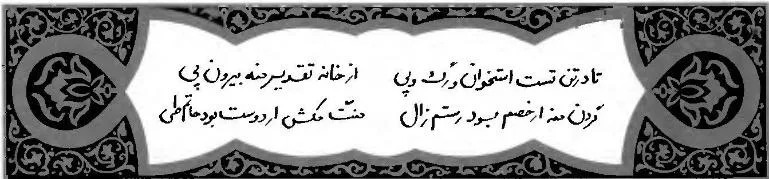 تا در تن تست استخوان و رگ و پی از خانه تقدیر منه بیرون پی
گردن منه ار خصم بود رستم زال منت مکش ار دوست بود حاتم طی